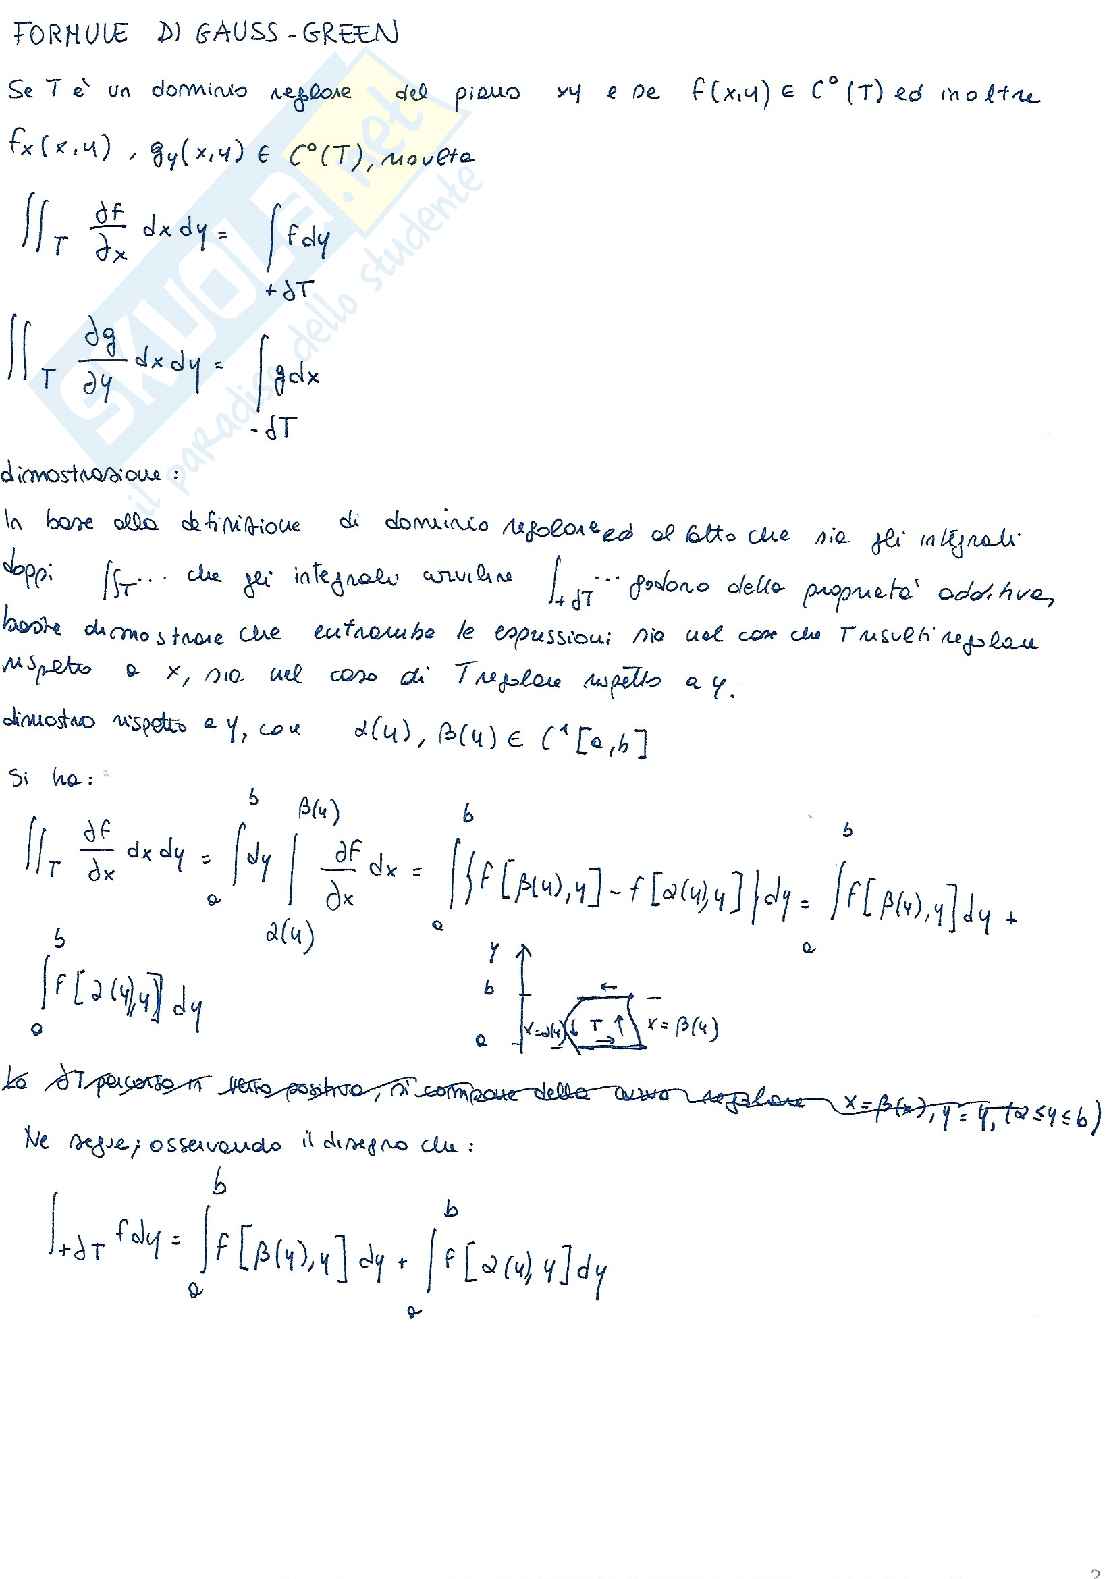 FORMULE DI GAUSS-GREEN
Se T è un dominio regolare del piano xy e se f(x,y) ∈ C°(T) ed inoltre
fx(x,y), gy(x,y) ∈ C°(T), risulta
∬_T ∂f/∂x dx dy = ∫_{+∂T} f dy
∬_T ∂g/∂y dx dy = ∫_{-∂T} g dx
dimostrazione:
In base alla definizione di dominio regolare ed al fatto che sia gli integrali
doppi ∬_T ... che gli integrali curviline ∫_{+∂T} ... godono della proprietà additiva,
basta dimostrare che entrambe le espressioni sia nel caso che T risulti regolare
rispetto a x, sia nel caso di T regolare rispetto a y.
dimostro rispetto a y, con α(y), β(y) ∈ C¹[a,b]
Si ha:
∬_T ∂f/∂x dx dy = ∫_a^b dy ∫_{α(y)}^{β(y)} ∂f/∂x dx = ∫_a^b {f[β(y),y] - f[α(y),y]} dy = ∫_a^b f[β(y),y] dy +
∫_a^b f[α(y),y] dy
y
b
a
x=α(y) T x=β(y)
La ∂T percorsa in verso positivo, si compone della curva regolare x=β(x), y=y, (a≤y≤b)
Ne segue, osservando il disegno che:
∫_{+∂T} f dy = ∫_a^b f[β(y),y] dy + ∫_a^b f[α(y),y] dy
SKUOLA.net
il paradiso dello studente
2